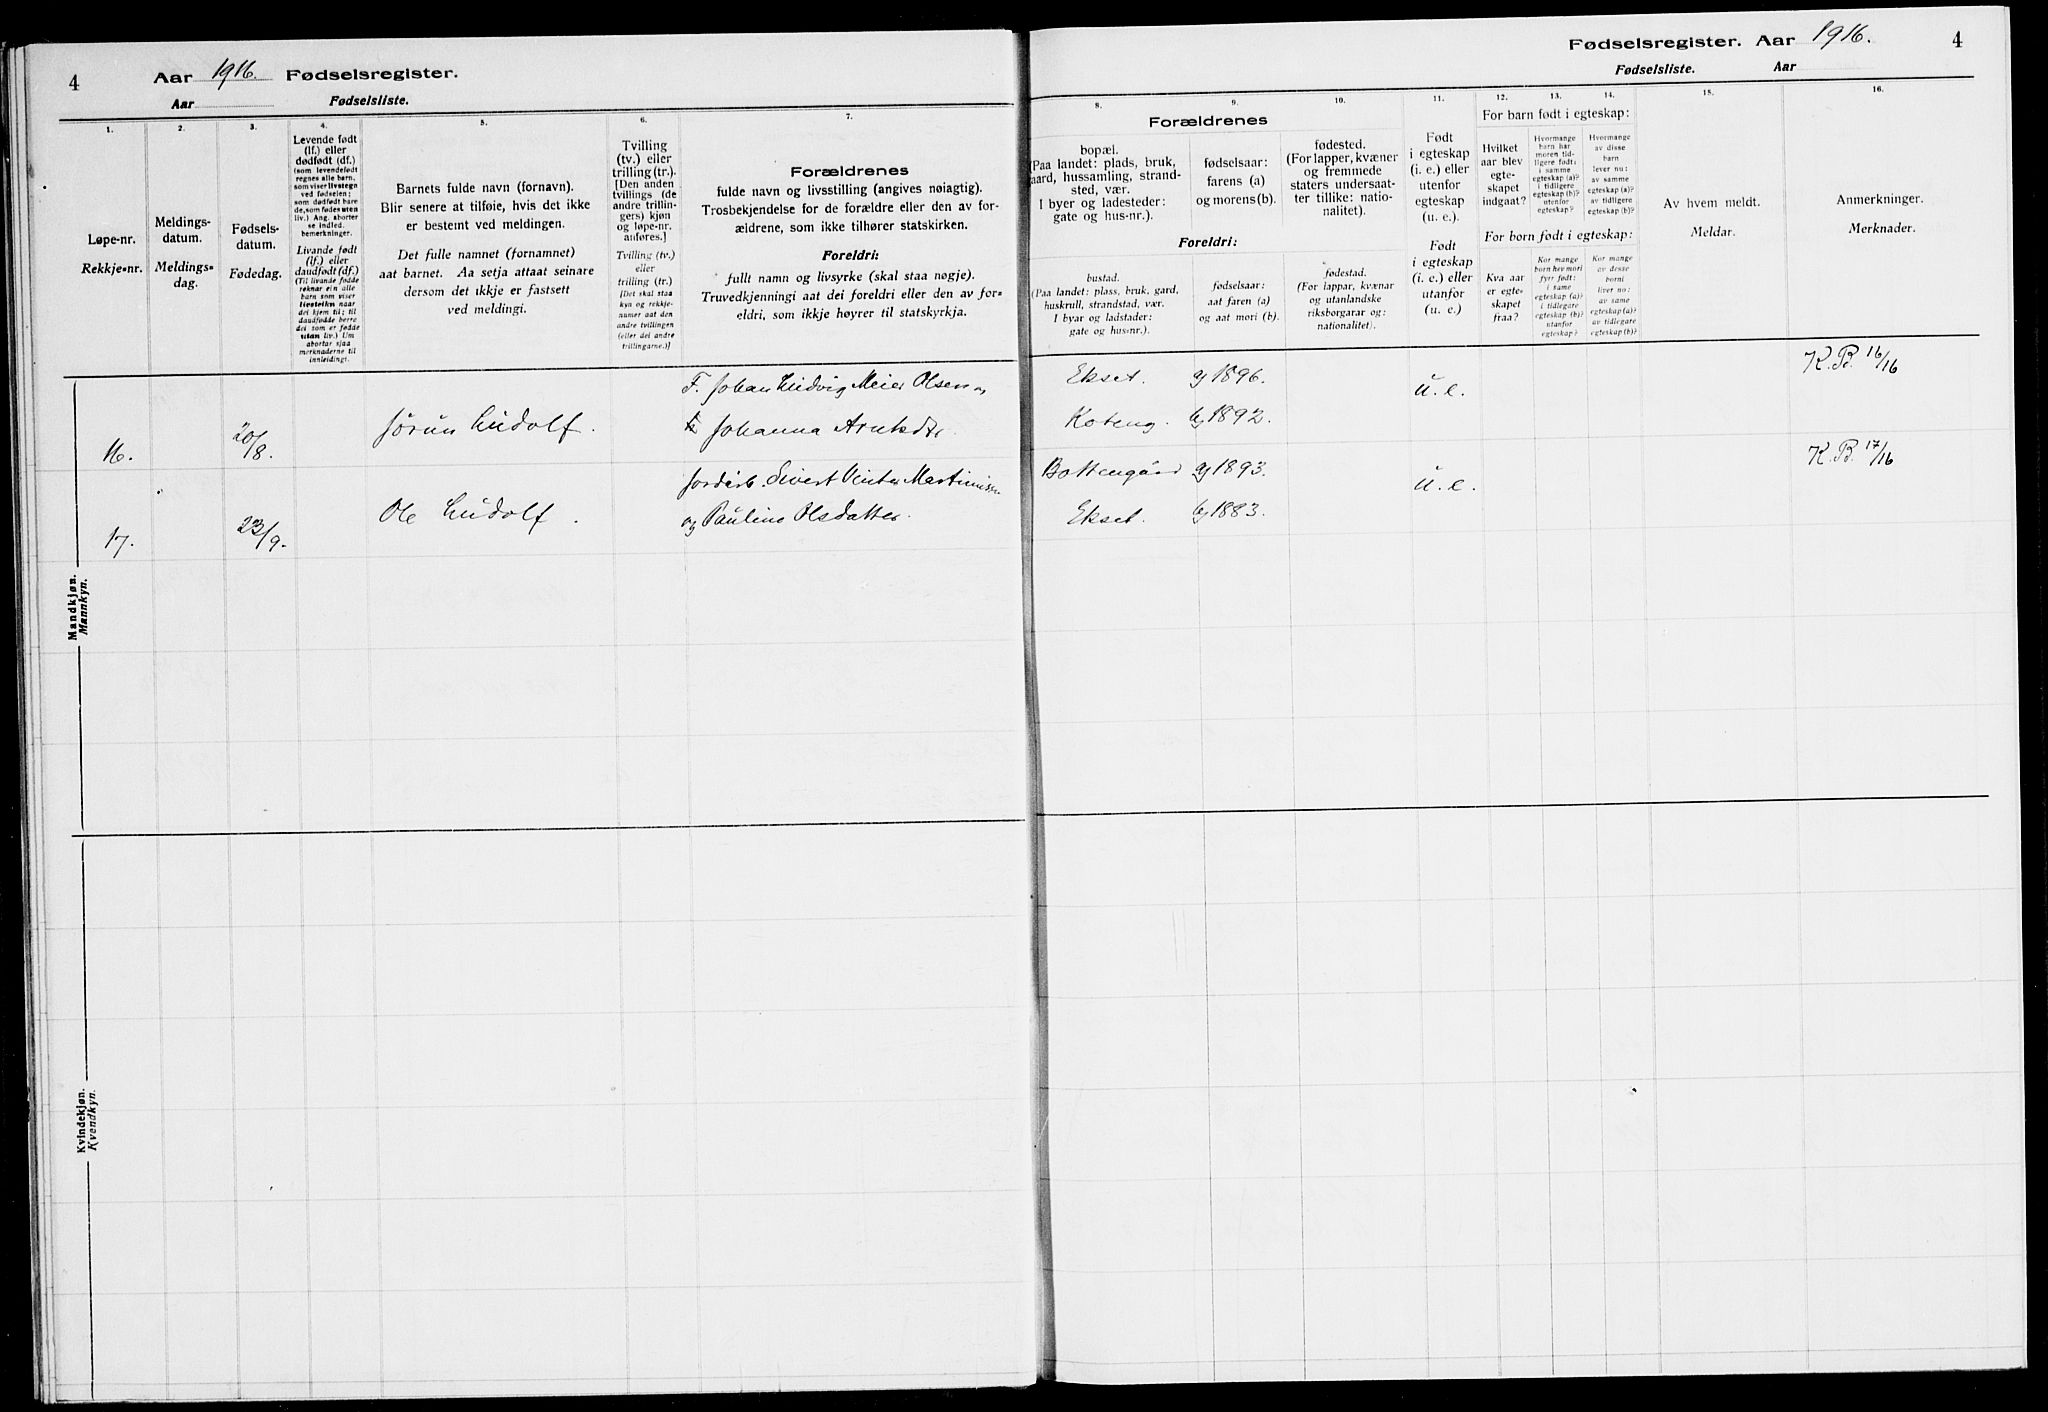 4 Aar 1916. Fødselsregister.
Aar Fødselsliste.
1. 2. 3. 4. 5. 6. 7.
Løpe-nr.
Rekkje-nr.
Meldings-
datum.
Meldings-
dag.
Fødsels-
datum.
Fødedag.
Levende født
(lf.) eller
dødfødt (df.)
(som levendefødt
regnes alle barn,
som viser livstegn
ved fødselen;
som dødfødt bare
de, som fødes uten
liv.) Ang. aborter
se indled.
bemerkninger.
Livande født
(lf.) eller
daudfødt (df.)
(Til livande fødde
reknar ein alle
barn som viser
livsteikn naar
dei kjem til; til
daudfødde berre
dei som er fødde
utan liv.) Um
abortar sjaa
merknaderne til
innleidingi.
Barnets fulde navn (fornavn).
Blir senere at tilføie, hvis det ikke
er bestemt ved meldingen.
Det fulle namnet (fornamnet)
aat barnet. Aa setja attaat seinare
dersom det ikkje er fastsett
ved meldingi.
Tvilling
(tv.) eller
trilling (tr.).
[Den anden
tvillings (de
andre trillin-
gers) kjøn
og løpe-nr.
anføres.]
Tvilling (tv.)
eller
trilling (tr.)
[Det skal staa
kyn og rekkje-
numer aat den
andre tvillingen
(eller dei andre
trillingarne.)]
Forældrenes
fulde navn og livsstilling (angives nøiagtig).
Trosbekjendelse for de forældre eller den av for-
ældrene, som ikke tilhører statskirken.
Foreldri:
fullt namn og livsyrke (skal staa nøgje).
Truvedkjenningi aat dei foreldri eller den av for-
eldri, som ikkje høyrer til statskyrkja.
Mandkjøn.
Mannkyn.
16. 20/8. Jørun Ludolf. F. Johan Ludvig Meier Olsen og
Johanna Arntsdtr.
17. 23/9. Ole Ludolf. Jordarb. Sivert Vinter Martinussen
og Pauline Olsdatter.
Kvindekjøn.
Kvendkyn.
Fødselsregister. Aar 1916. 4
Fødselsliste. Aar
8. 9. 10. 11. 12. 13. 14. 15. 16.
Forældrenes
bopæl.
(Paa landet: plads, bruk,
gaard, hussamling, strand-
sted, vær.
I byer og ladesteder:
gate og hus-nr.).
fødselsaar:
farens (a)
og morens (b).
fødested.
(For lapper, kvæner
og fremmede
staters undersaat-
ter tillike: natio-
nalitet).
Foreldri:
bustad.
(Paa landet: plass, bruk, gard,
huskrull, strandstad, vær.
I byar og ladstader:
gate og hus-nr.).
fødselsaar:
aat faren (a)
og aat mori (b).
fødestad.
(For lappar, kvænar
og utanlandske
riksborgarar og:
nationalitet).
Født
i egteskap
(i. e.) eller
utenfor
egteskap
(u. e.).
Født
i egteskap
(i. e.) eller
utanfor
(u. e.)
For barn født i egteskap:
Hvilket
aar blev
egte-
skapet
indgaat?
Hvormange
barn har
moren tid-
ligere født:
i samme
egteskap (a)?
i tidligere
egteskap (b)?
utenfor
egteskap?
Hvormange
av disse
barn
lever nu:
av samme
egteskap (a)?
av tidligere
egteskap (b)?
For born født i egteskap:
Kva aar
er egte-
skapet
fraa?
Kor mange
born hev mori
fyrr født:
i same
egteskap (a)?
i tidlegare
egteskap (b)?
utanfor
egteskap?
Kor mange
av desse
borni
liver no:
av same
egteskap (a)?
av tidlegare
egteskap (b)?
Av hvem meldt.
Meldar.
Anmerkninger.
Merknader.
Ekset. a) 1896. u. e. K. B. 16/16
Koteng. b) 1892.
Bottengård a) 1893. u. e. K. B. 17/16
Ekset. b) 1883.